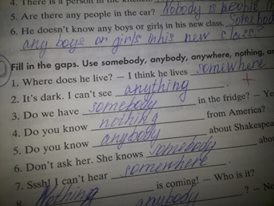 4. There is a person in the kitchen
5. Are there any people in the car? Nobody is people in
6. He doesn't know any boys or girls in his new class.
any boys or girls in his new class
Fill in the gaps. Use somebody, anybody, anywhere, nothing,
1. Where does he live? — I think he lives somiwhere
2. It's dark. I can't see anything
3. Do we have somebody in the fridge? — Ye
4. Do you know nothing from America?
5. Do you know anybody about Shakespea
6. Don't ask her. She knows somebody about
7. Sssh! I can't hear somewhere.
Nothing is coming! — Who is it?
anybody